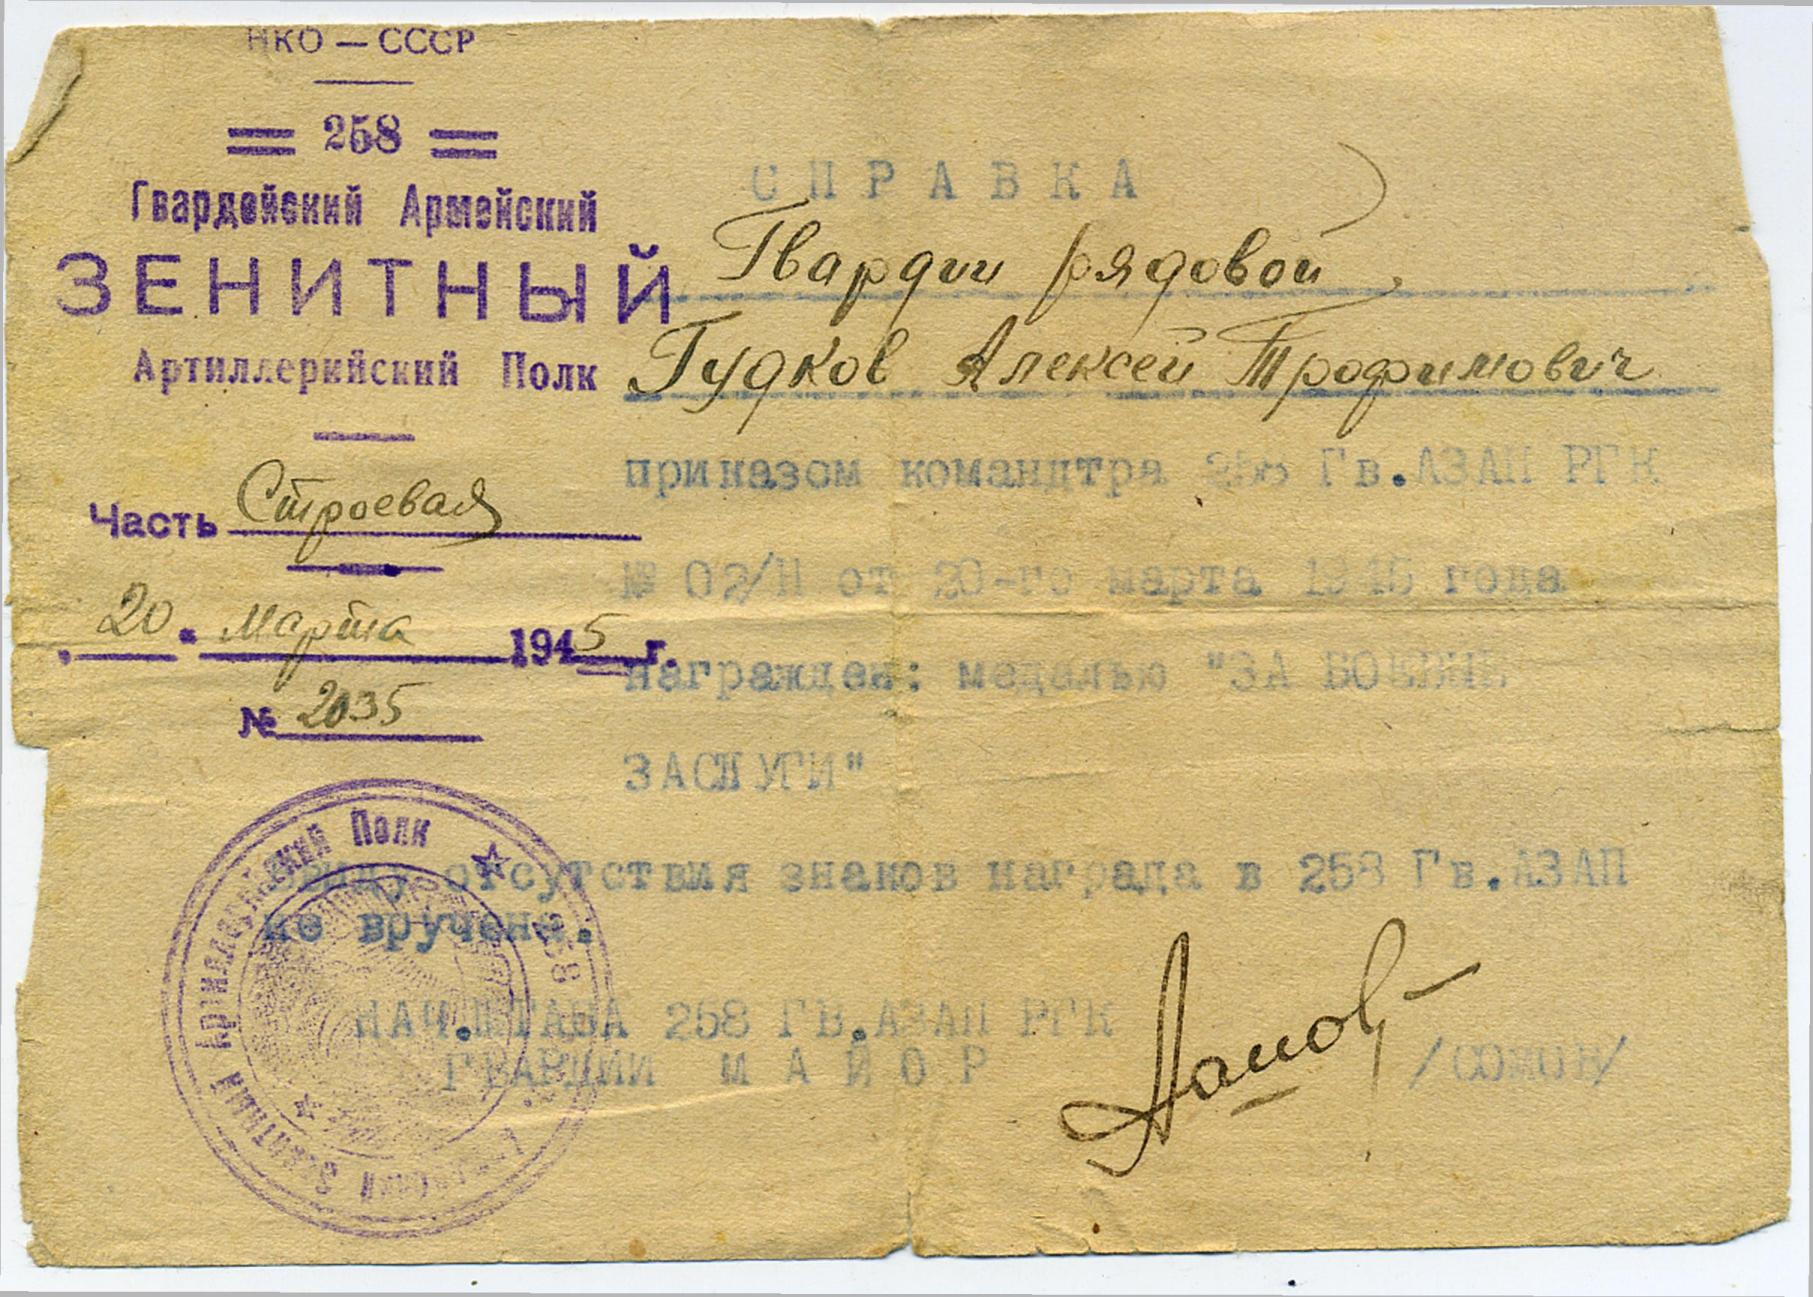 НКО — СССР
258
Гвардейский Армейский
ЗЕНИТНЫЙ
Артиллерийский Полк
Часть Строевая
„20" марта 1945 г.
№ 2035
СПРАВКА
Гвардии рядовой
Гудков Алексей Трофимович
приказом командтра 258 Гв.АЗАП РГК
№ 02/Н от 20-го марта 1945 года
награжден: медалью "ЗА БОЕВЫЕ
ЗАСЛУГИ"
Ввиду отсутствия знаков награда в 258 Гв.АЗАП
не вручена.
НАЧ.ШТАБА 258 ГВ.АЗАП РГК
ГВАРДИИ МАЙОР /СОМОВ/
258
Зенитный Артиллерийский Полк